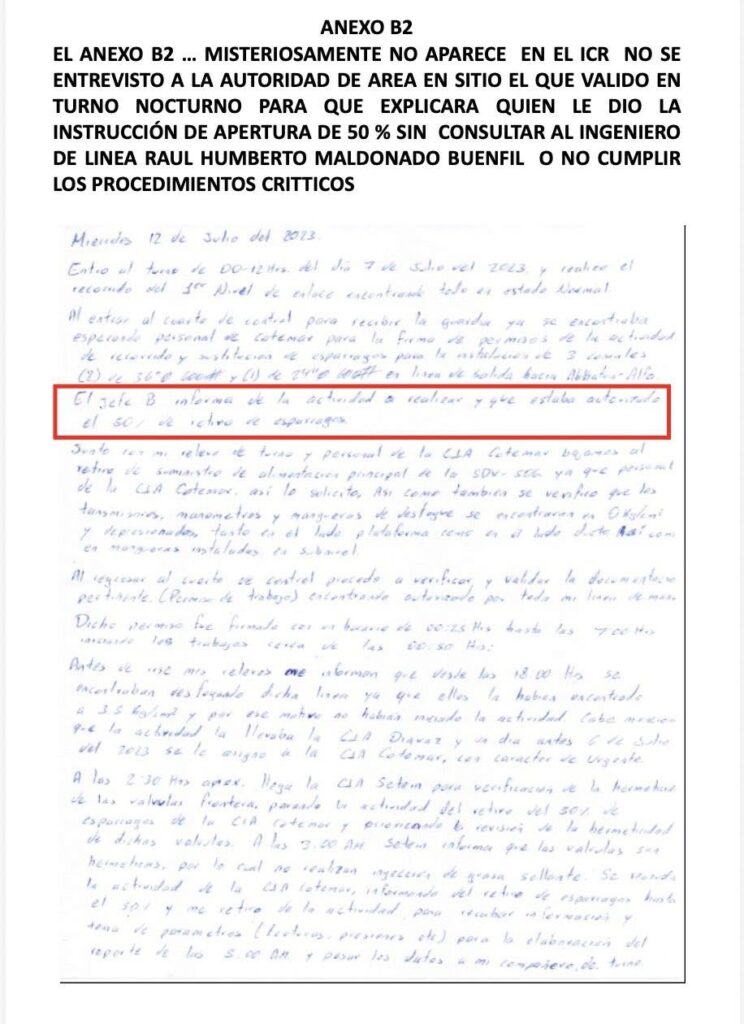 ANEXO B2
EL ANEXO B2 ... MISTERIOSAMENTE NO APARECE EN EL ICR NO SE
ENTREVISTO A LA AUTORIDAD DE AREA EN SITIO EL QUE VALIDO EN
TURNO NOCTURNO PARA QUE EXPLICARA QUIEN LE DIO LA
INSTRUCCIÓN DE APERTURA DE 50 % SIN CONSULTAR AL INGENIERO
DE LINEA RAUL HUMBERTO MALDONADO BUENFIL O NO CUMPLIR
LOS PROCEDIMIENTOS CRITTICOS
Miercoles 12 de Julio del 2023.
Entro al turno de 00-12 Hrs. del día 7 de Julio del 2023 y realizo el
recorrido del 1er Nivel de enlace encontrando todo en estado Normal
Al entrar al cuarto de control para recibir la guardia ya se encontraba
esperando personal de cotemar para la firma de permisos de la actividad
de recorrido y sustitucion de esparragos para la instalacion de 3 comales
(2) de 36"Ø 600# y (1) de 24"Ø 600# en linea de salida hacia Abkatun-Alfa
El Jefe B informa de la actividad a realizar y que estaba autorizado
el 50% de retiro de esparragos
Junto con mi relevo de turno y personal de la CIA Cotemar bajamos al
retiro de suministro de alimentacion principal de la SDV-506 ya que personal
de la CIA Cotemar. así lo solicito, Asi como tambien se verifico que los
tansmisores, manometros y mangueras de desfogue se encontraran en 0 Kg/cm²
y depresionados, tanto en el lado plataforma como en el lado ducto, Así com
en mangueras instaladas en subnivel.
Al regresar al cuarto de control procedo a verificar y validar la documentacio
pertinente. (Permiso de trabajo) encontrando autorizado por toda mi linea de mando
Dicho permiso fue firmado con un horario de 00:25 Hrs hasta las 7:00 Hrs
iniciando los trabajos cerca de las 00:50 Hrs:
Antes de irse mis relevos me informan que desde las 18:00 Hrs se
encontraban desfogando dicha linea ya que ellos la habian encontrado
a 3.5 Kg/cm² y por ese motivo no habian iniciado la actividad. Cabe mencion
que la actividad la llevaba la CIA Diavaz y un día antes 6 de Julio
del 2023 se le asigno a la CIA Cotemar, con caracter de Urgente.
A las 2:30 Hrs aprox. llega la CIA Setem para verificacion de la hermetici
de las valvulas frontera, parando la actividad del retiro del 50% de
esparragos de la CIA cotemar y priorizando la revision de la hermeticidad
de dichas valvulas. A las 3:00 AM Setem informa que las valvulas son
hermeticas, por lo cual no realizan inyeccion de grasa sellante. Se reanuda
la actividad de la CIA cotemar, informando del retiro de esparragos hasta
el 50% y me retiro de la actividad, para recabar informacion y
toma de parametros (lecturas, presiones etc) para la elaboracion del
reporte de las 5:00 AM y pasar los datos a mi compañero de turno